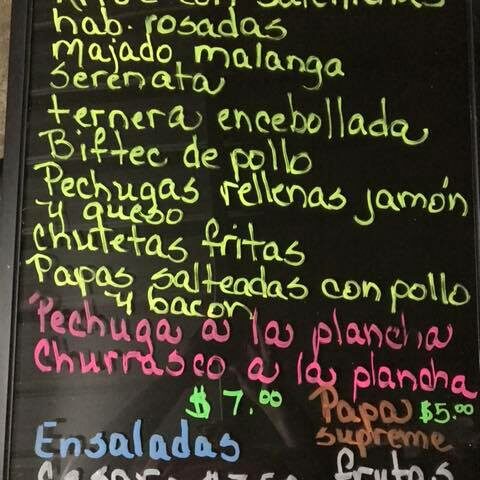 Arroz con salchichas
hab. rosadas
Majado malanga
serenata
ternera encebollada
Biftec de pollo
Pechugas rellenas jamón
y queso
Chuletas fritas
Papas salteadas con pollo
y bacon
Pechuga a la plancha
Churrasco a la plancha
$ 7.00 Papa $5.00
supreme
Ensaladas
frutas